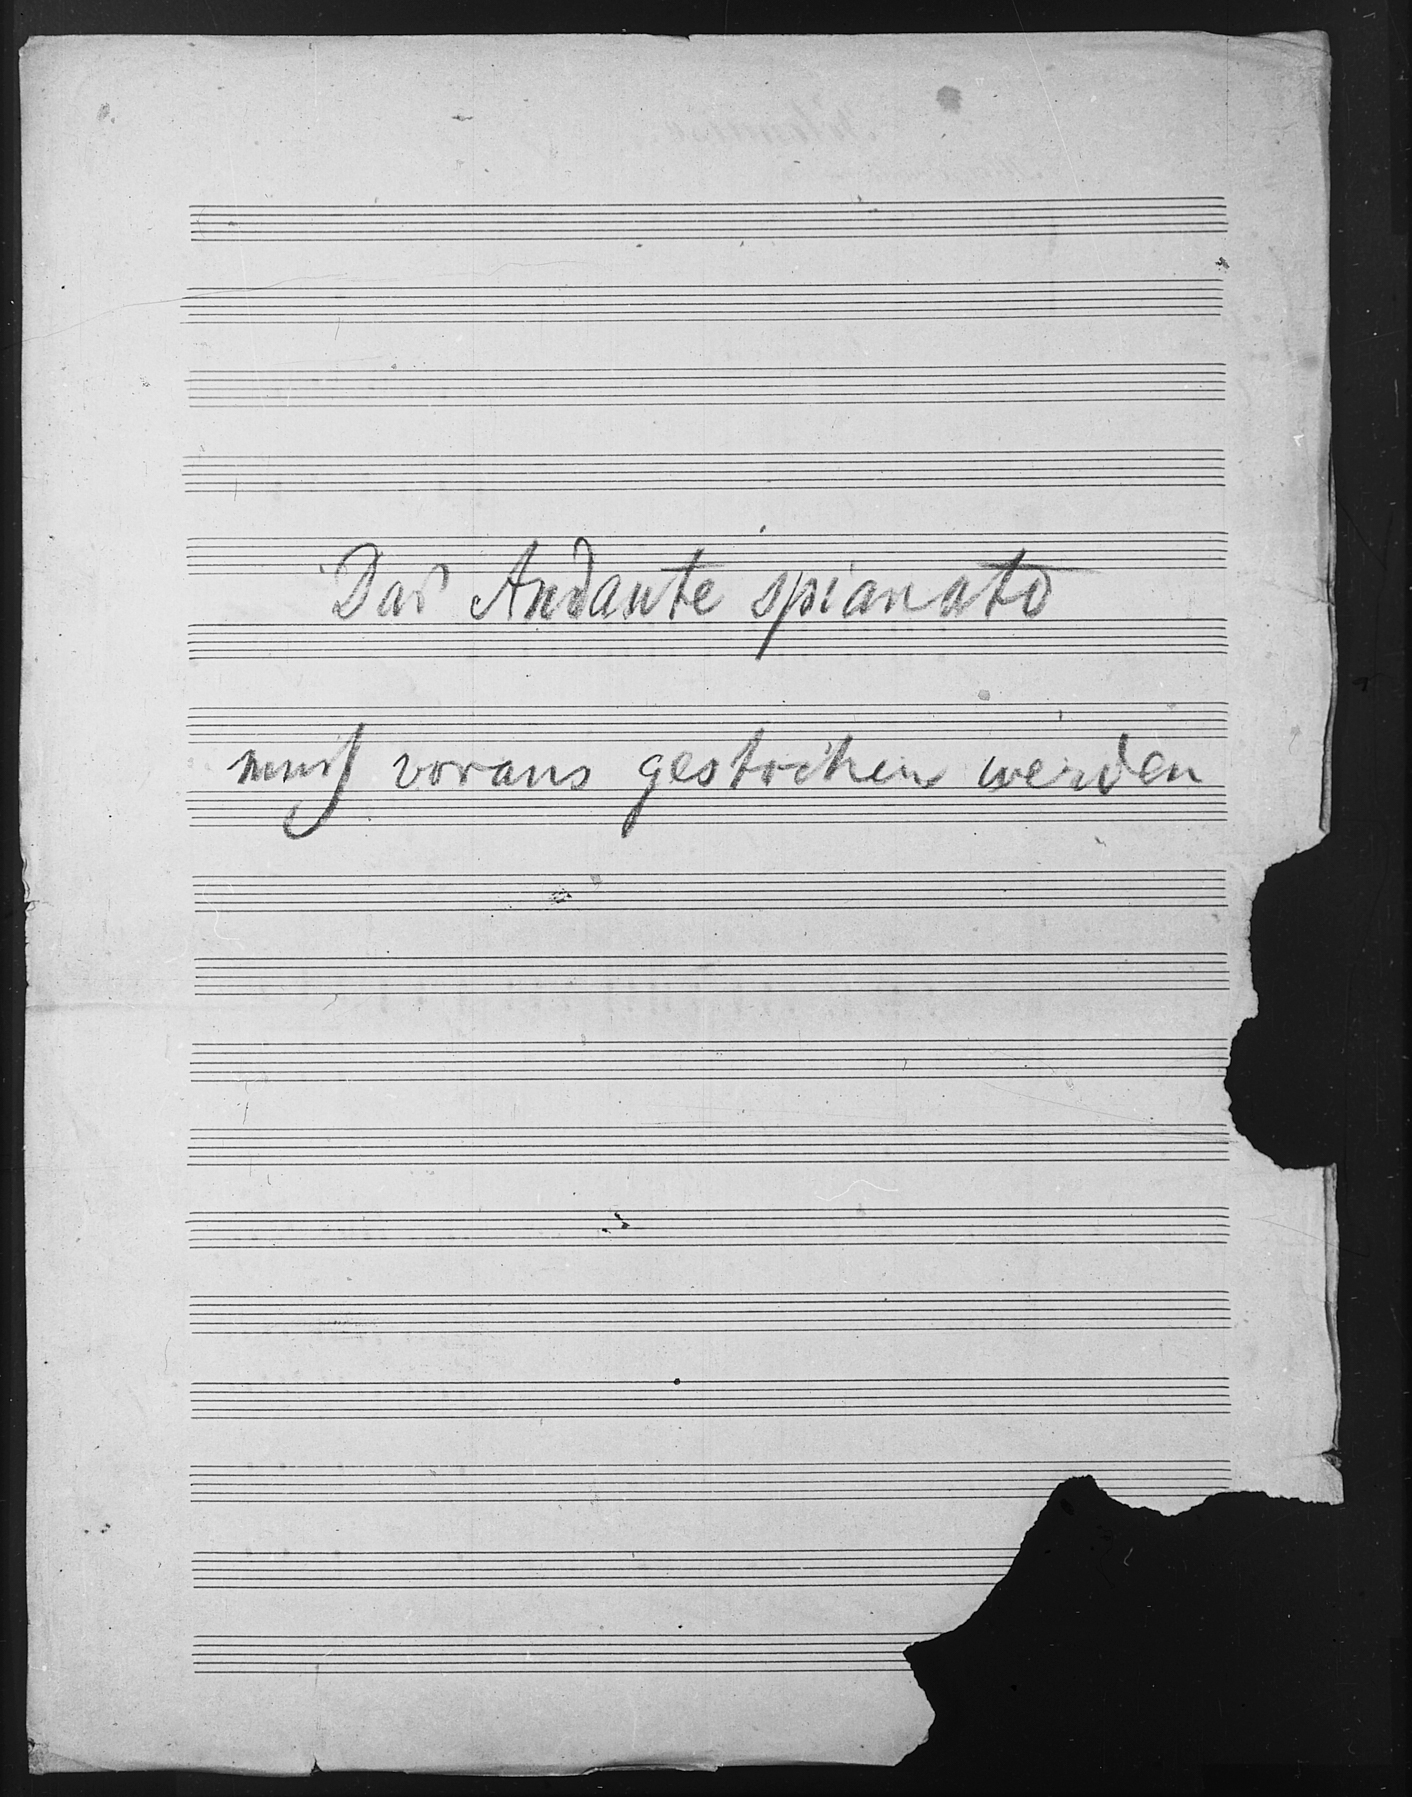 Das Andante spianato
muß voraus gestochen werden